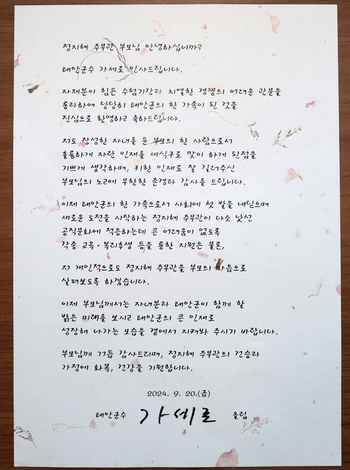 정지혜 주무관 부모님 안녕하십니까?
태안군수 가세로 인사드립니다.
자제분이 힘든 수험기간과 치열한 경쟁의 어려운 관문을
통과하여 당당히 태안군의 한 가족이 된 것을
진심으로 환영하고 축하드립니다.
저도 장성한 자녀를 둔 부모의 한 사람으로서
훌륭하게 자란 인재를 새식구로 맞이 하게 되었음
기쁘게 생각하며, 귀한 인재로 잘 길러주신
부모님의 노고에 무한한 존경과 감사를 드립니다.
이제 태안군의 한 가족으로서 사회에 첫 발을 내딛으며
새로운 도전을 시작하는 정지혜 주무관이 다소 낯선
공직문화에 적응하는데 큰 어려움이 없도록
각종 교육·복리후생 등을 통한 지원은 물론,
저 개인적으로도 정지혜 주무관을 부모의 마음으로
살펴보도록 하겠습니다.
이제 부모님께서는 자녀분과 태안군이 함께 할
밝은 미래를 보시고 태안군의 큰 인재로
성장해 나가는 모습을 곁에서 지켜봐 주시기 바랍니다.
부모님께 거듭 감사드리며, 정지혜 주무관의 건승과
가정에 화목, 건강을 기원합니다.
2024. 9. 20.(금)
태안군수 가세로 올림